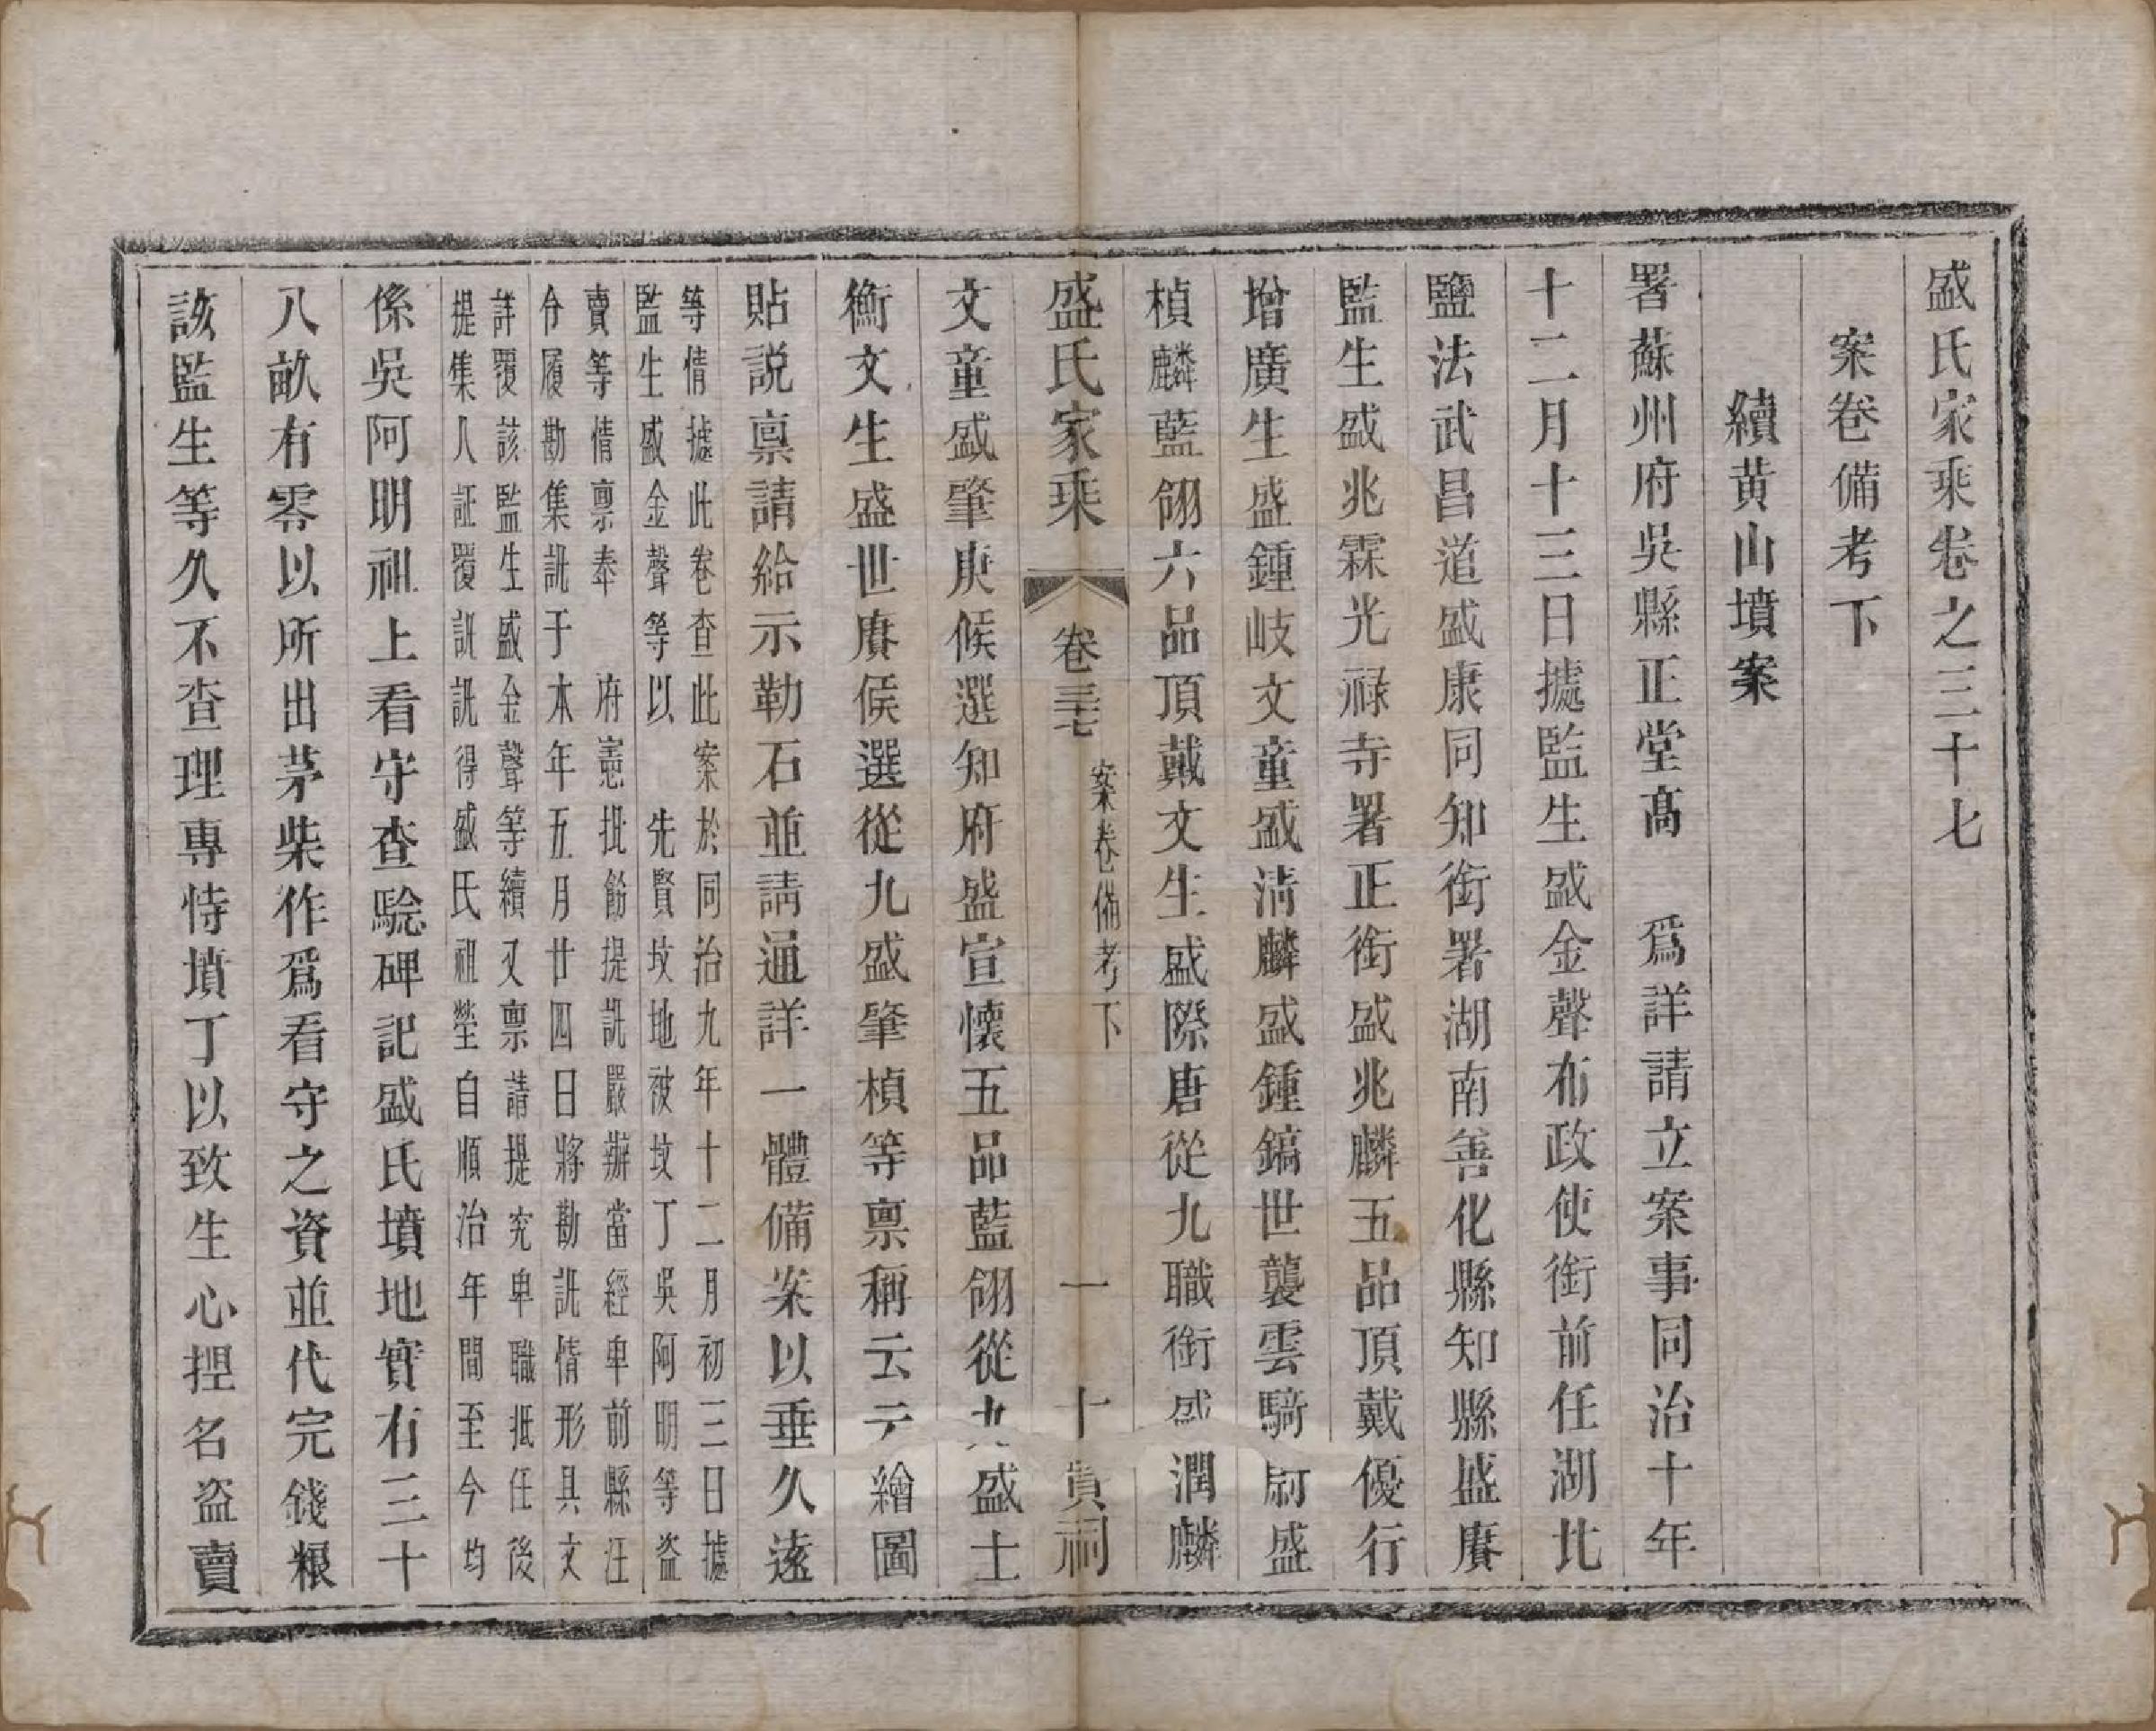 盛氏家乘卷之三十七
案卷備考下
續黄山墳案
署蘇州府吳縣正堂高　爲詳請立案事同治十年
十二月十三日據監生盛金聲布政使銜前任湖北
鹽法武昌道盛康同知銜署湖南善化縣知縣盛賡
監生盛兆霖光祿寺署正銜盛兆麟五品頂戴優行
增廣生盛鍾岐文童盛清麟盛鍾鎬世襲雲騎尉盛
楨麟藍翎六品頂戴文生盛際唐從九職銜盛潤麟
盛氏家乘　卷三十七　案卷備考下　一　十賁祠
文童盛肇庚候選知府盛宣懷五品藍翎從九盛士
衡文生盛世賡候選從九盛肇楨等禀稱云云繪圖
貼説禀請給示勒石並請通詳一體備案以垂久遠
等情據此卷查此案於同治九年十二月初三日據
監生盛金聲等以　先賢坟地被坟丁吳阿明等盜
賣等情禀奉　府憲批飭提訊嚴辦當經卑前縣汪
令履勘集訊于本年五月廿四日將勘訊情形具文
詳覆該監生盛金聲等續又禀請提究卑職抵任後
提集人証覆訊訊得盛氏祖塋自順治年間至今均
係吳阿明祖上看守查驗碑記盛氏墳地實有三十
八畝有零以所出茅柴作爲看守之資並代完錢粮
該監生等久不查理專恃墳丁以致生心捏名盜賣